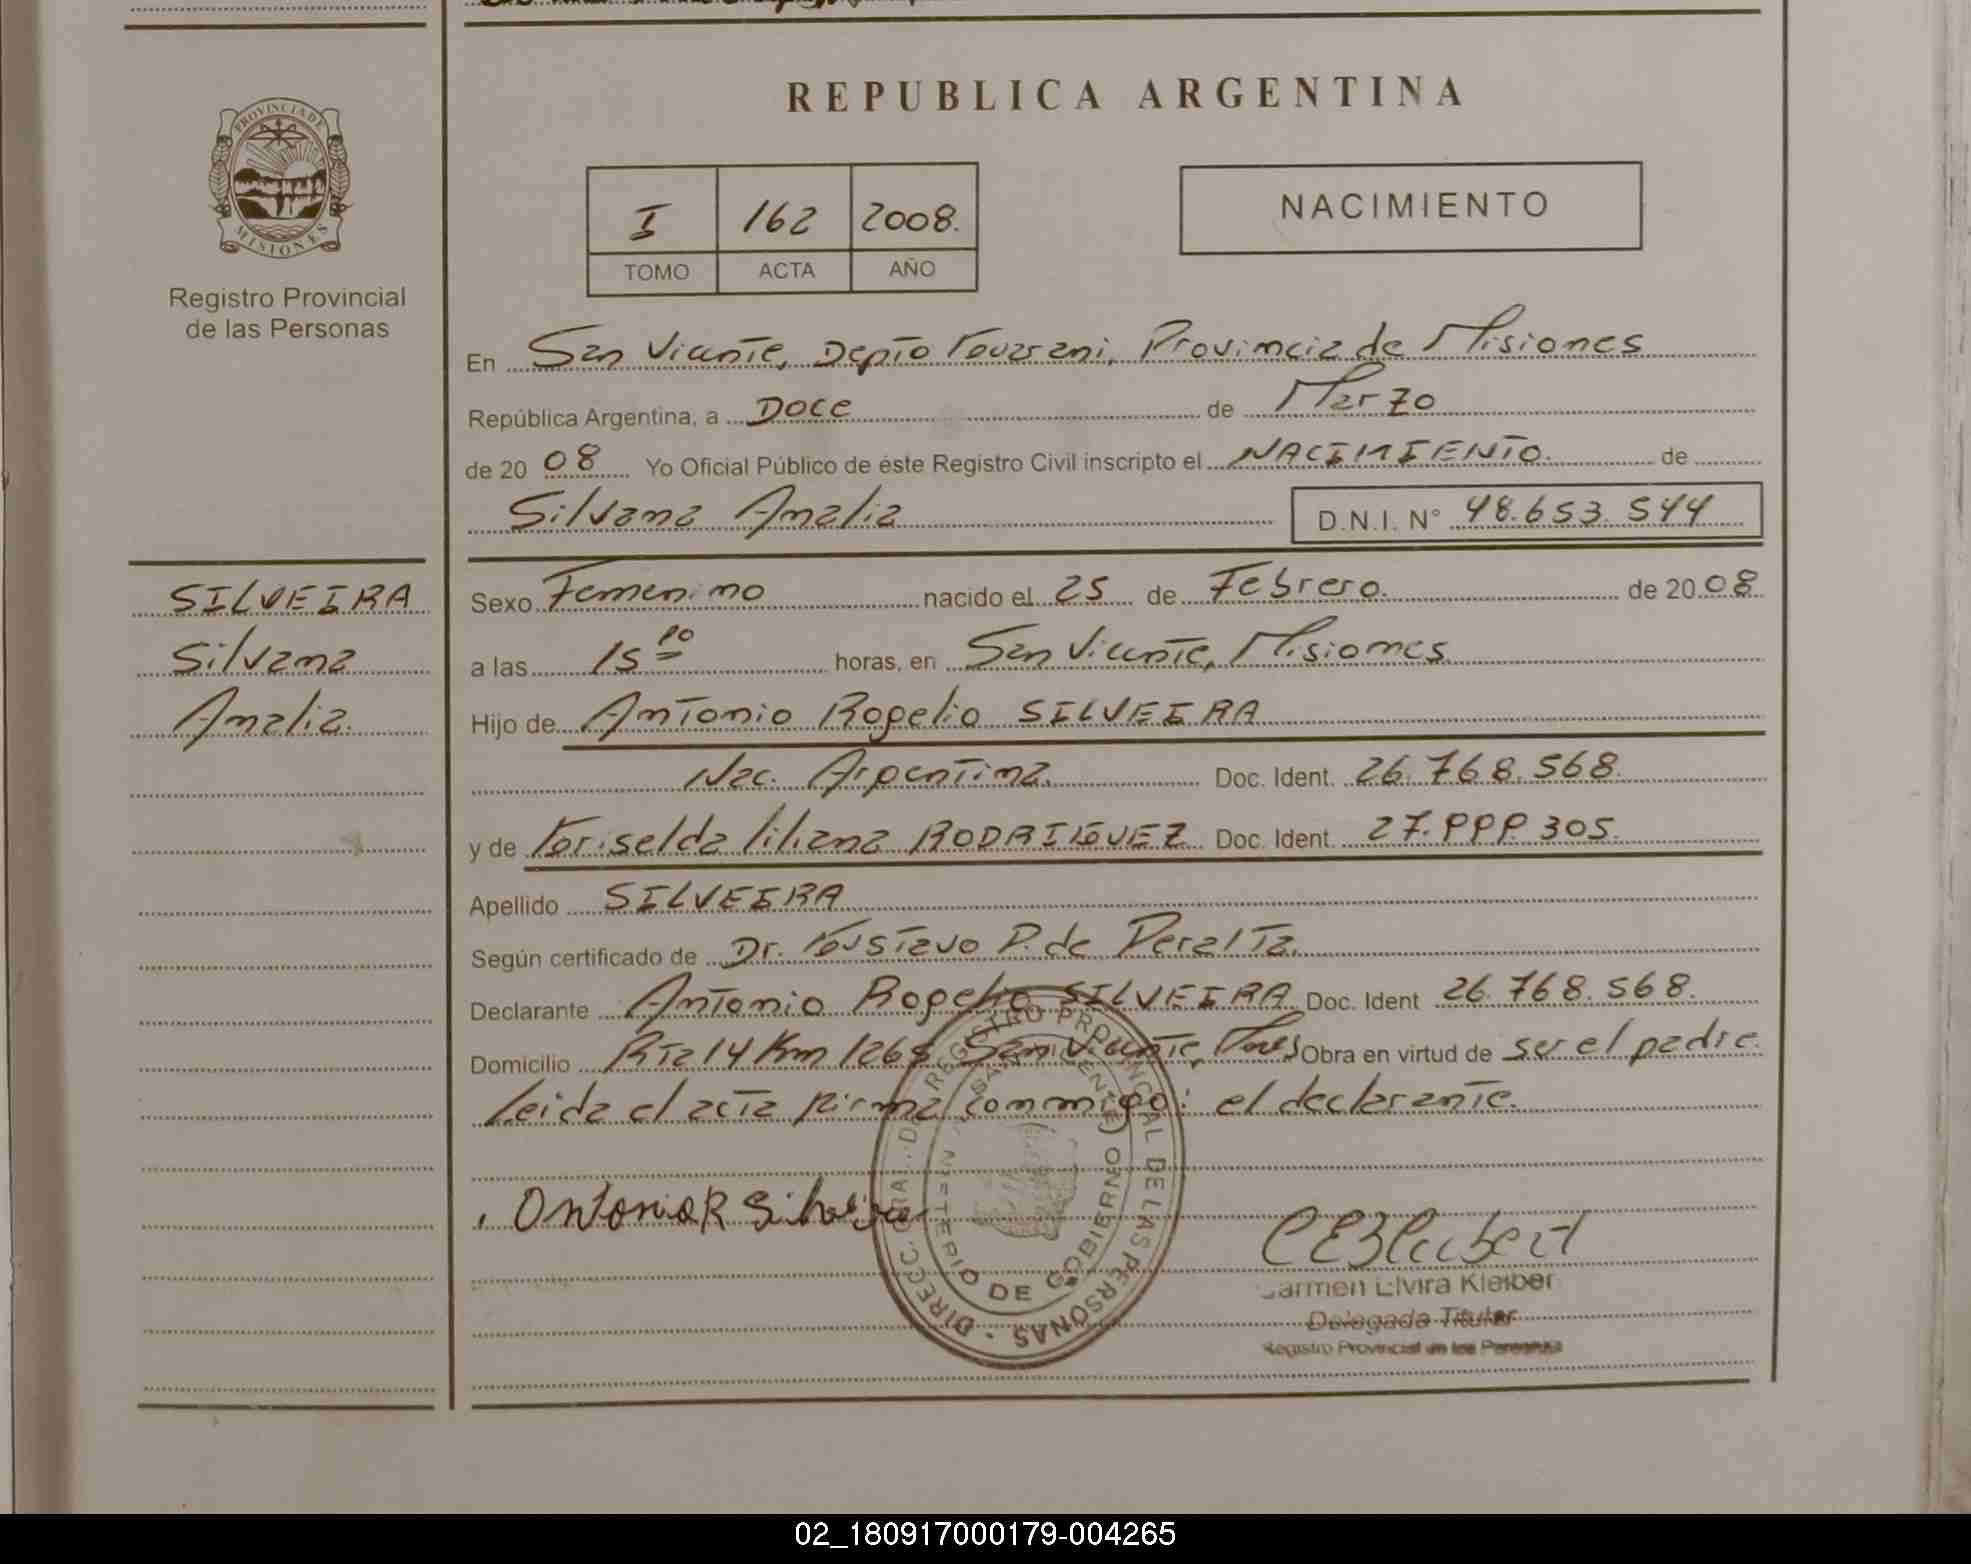 REPUBLICA ARGENTINA
PROVINCIA DE MISIONES
Registro Provincial
de las Personas
I 162 2008.
TOMO ACTA AÑO
NACIMIENTO
En San Vicente, Depto Guarani, Provincia de Misiones
República Argentina, a Doce de Marzo
de 20 08 Yo Oficial Público de éste Registro Civil inscripto el NACIMIENTO. de
Silvana Analia D.N.I. N° 48.653.544
SILVEIRA
Silvana
Analia.
Sexo Femenino nacido el 25 de Febrero. de 20 08
a las 15 horas, en San Vicente, Misiones
Hijo de Antonio Rogelio SILVEIRA
Nac. Argentina. Doc. Ident. 26.768.568.
y de Griselda liliana RODRIGUEZ Doc. Ident. 27.999.305.
Apellido SILVEIRA
Según certificado de Dr. Gustavo P. de Peralta.
Declarante Antonio Rogelio SILVEIRA Doc. Ident 26.768.568.
Domicilio Rta 14 Km 1265 San Vicente, Mnes Obra en virtud de ser el padre.
Leida el acta firma conmigo: el declarante.
Antonio R Silveira
DIRECC. GRAL. DE REGISTRO PROVINCIAL DE LAS PERSONAS
SAN VICENTE
MINISTERIO DE GOBIERNO
Carmen Elvira Kleiber
Delegada Titular
Registro Provincial de las Personas
02_180917000179-004265